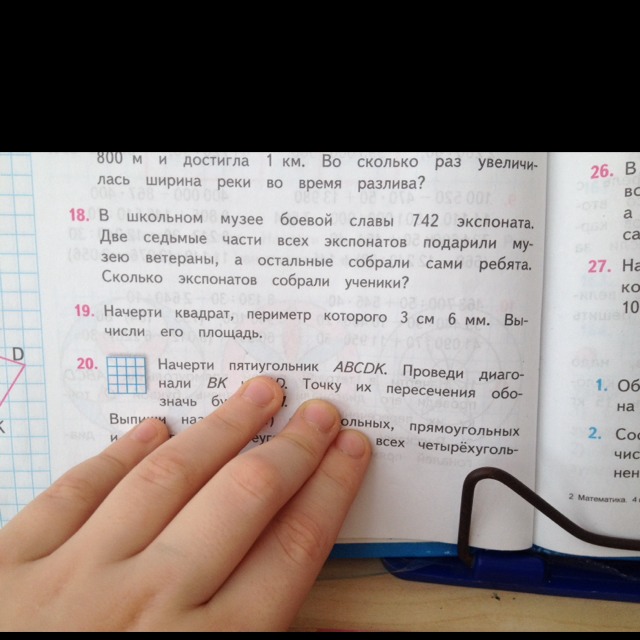 800 м и достигла 1 км. Во сколько раз увеличи-
лась ширина реки во время разлива?
18. В школьном музее боевой славы 742 экспоната.
Две седьмые части всех экспонатов подарили му-
зею ветераны, а остальные собрали сами ребята.
Сколько экспонатов собрали ученики?
19. Начерти квадрат, периметр которого 3 см 6 мм. Вы-
числи его площадь.
20. Начерти пятиугольник ABCDK. Проведи диаго-
нали BK Точку их пересечения обо-
значь
прямоугольных
всех четырёхуголь-
D
K
26. В
а
27.
10
1. Об
на
2. Сос
чис
нен
2 Математика